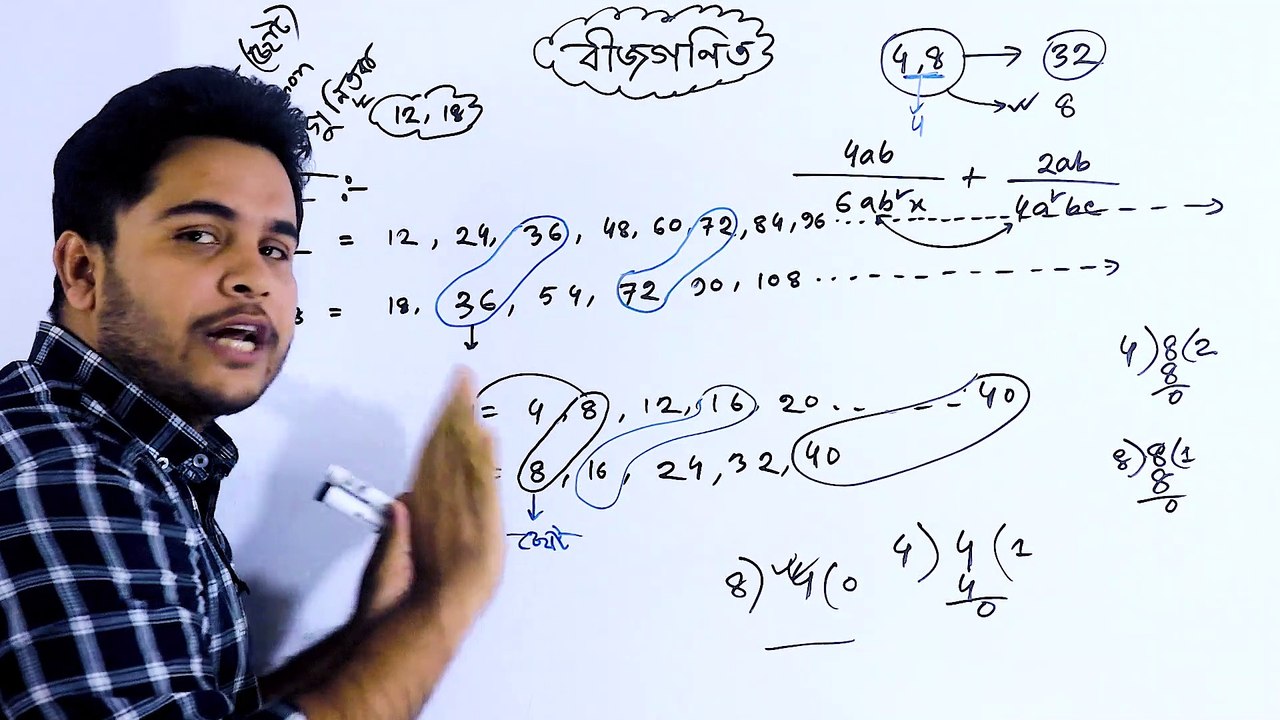 বীজগণিত
4,8 → 32
8
4
12, 18
4ab + 2ab
6ab²x 4a²bc
= 12, 24, 36, 48, 60, 72, 84, 96 ... - - - →
= 18, 36, 54, 72 90, 108 ... - - - →
= 4, 8, 12, 16, 20 . . - - - 40
= 8, 16, 24, 32, 40
ছোট
4)8(2
8
0
8)8(1
8
0
8) 4(0
4) 4 (1
4
0